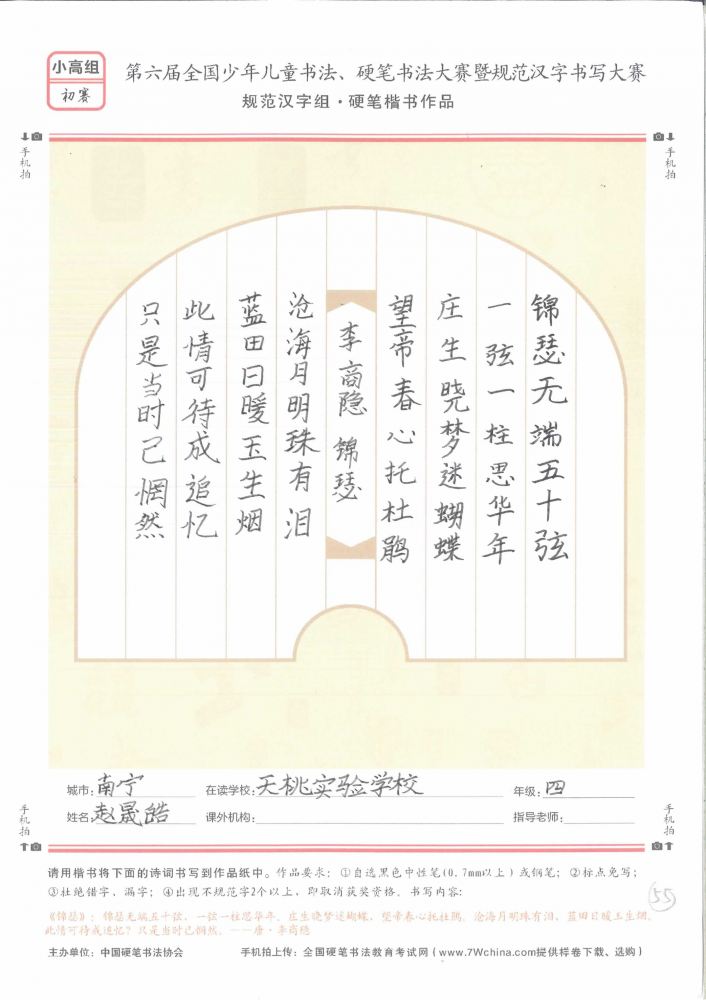 小高组
初赛
第六届全国少年儿童书法、硬笔书法大赛暨规范汉字书写大赛
规范汉字组·硬笔楷书作品
手机拍
手机拍
锦瑟无端五十弦
一弦一柱思华年
庄生晓梦迷蝴蝶
望帝春心托杜鹃
李商隐 锦瑟
沧海月明珠有泪
蓝田日暖玉生烟
此情可待成追忆
只是当时已惘然
城市:南宁 在读学校:天桃实验学校 年级:四
姓名:赵晟皓 课外机构: 指导老师:
手机拍
手机拍
请用楷书将下面的诗词书写到作品纸中。作品要求:①自选黑色中性笔(0.7mm以上)或钢笔;②标点免写;
③杜绝错字、漏字;④出现不规范字2个以上,即取消获奖资格。书写内容:
55
《锦瑟》:锦瑟无端五十弦,一弦一柱思华年。庄生晓梦迷蝴蝶,望帝春心托杜鹃。沧海月明珠有泪,蓝田日暖玉生烟。
此情可待成追忆?只是当时已惘然。——唐·李商隐
主办单位:中国硬笔书法协会 手机拍上传:全国硬笔书法教育考试网(www.7Wchina.com提供样卷下载、选购)